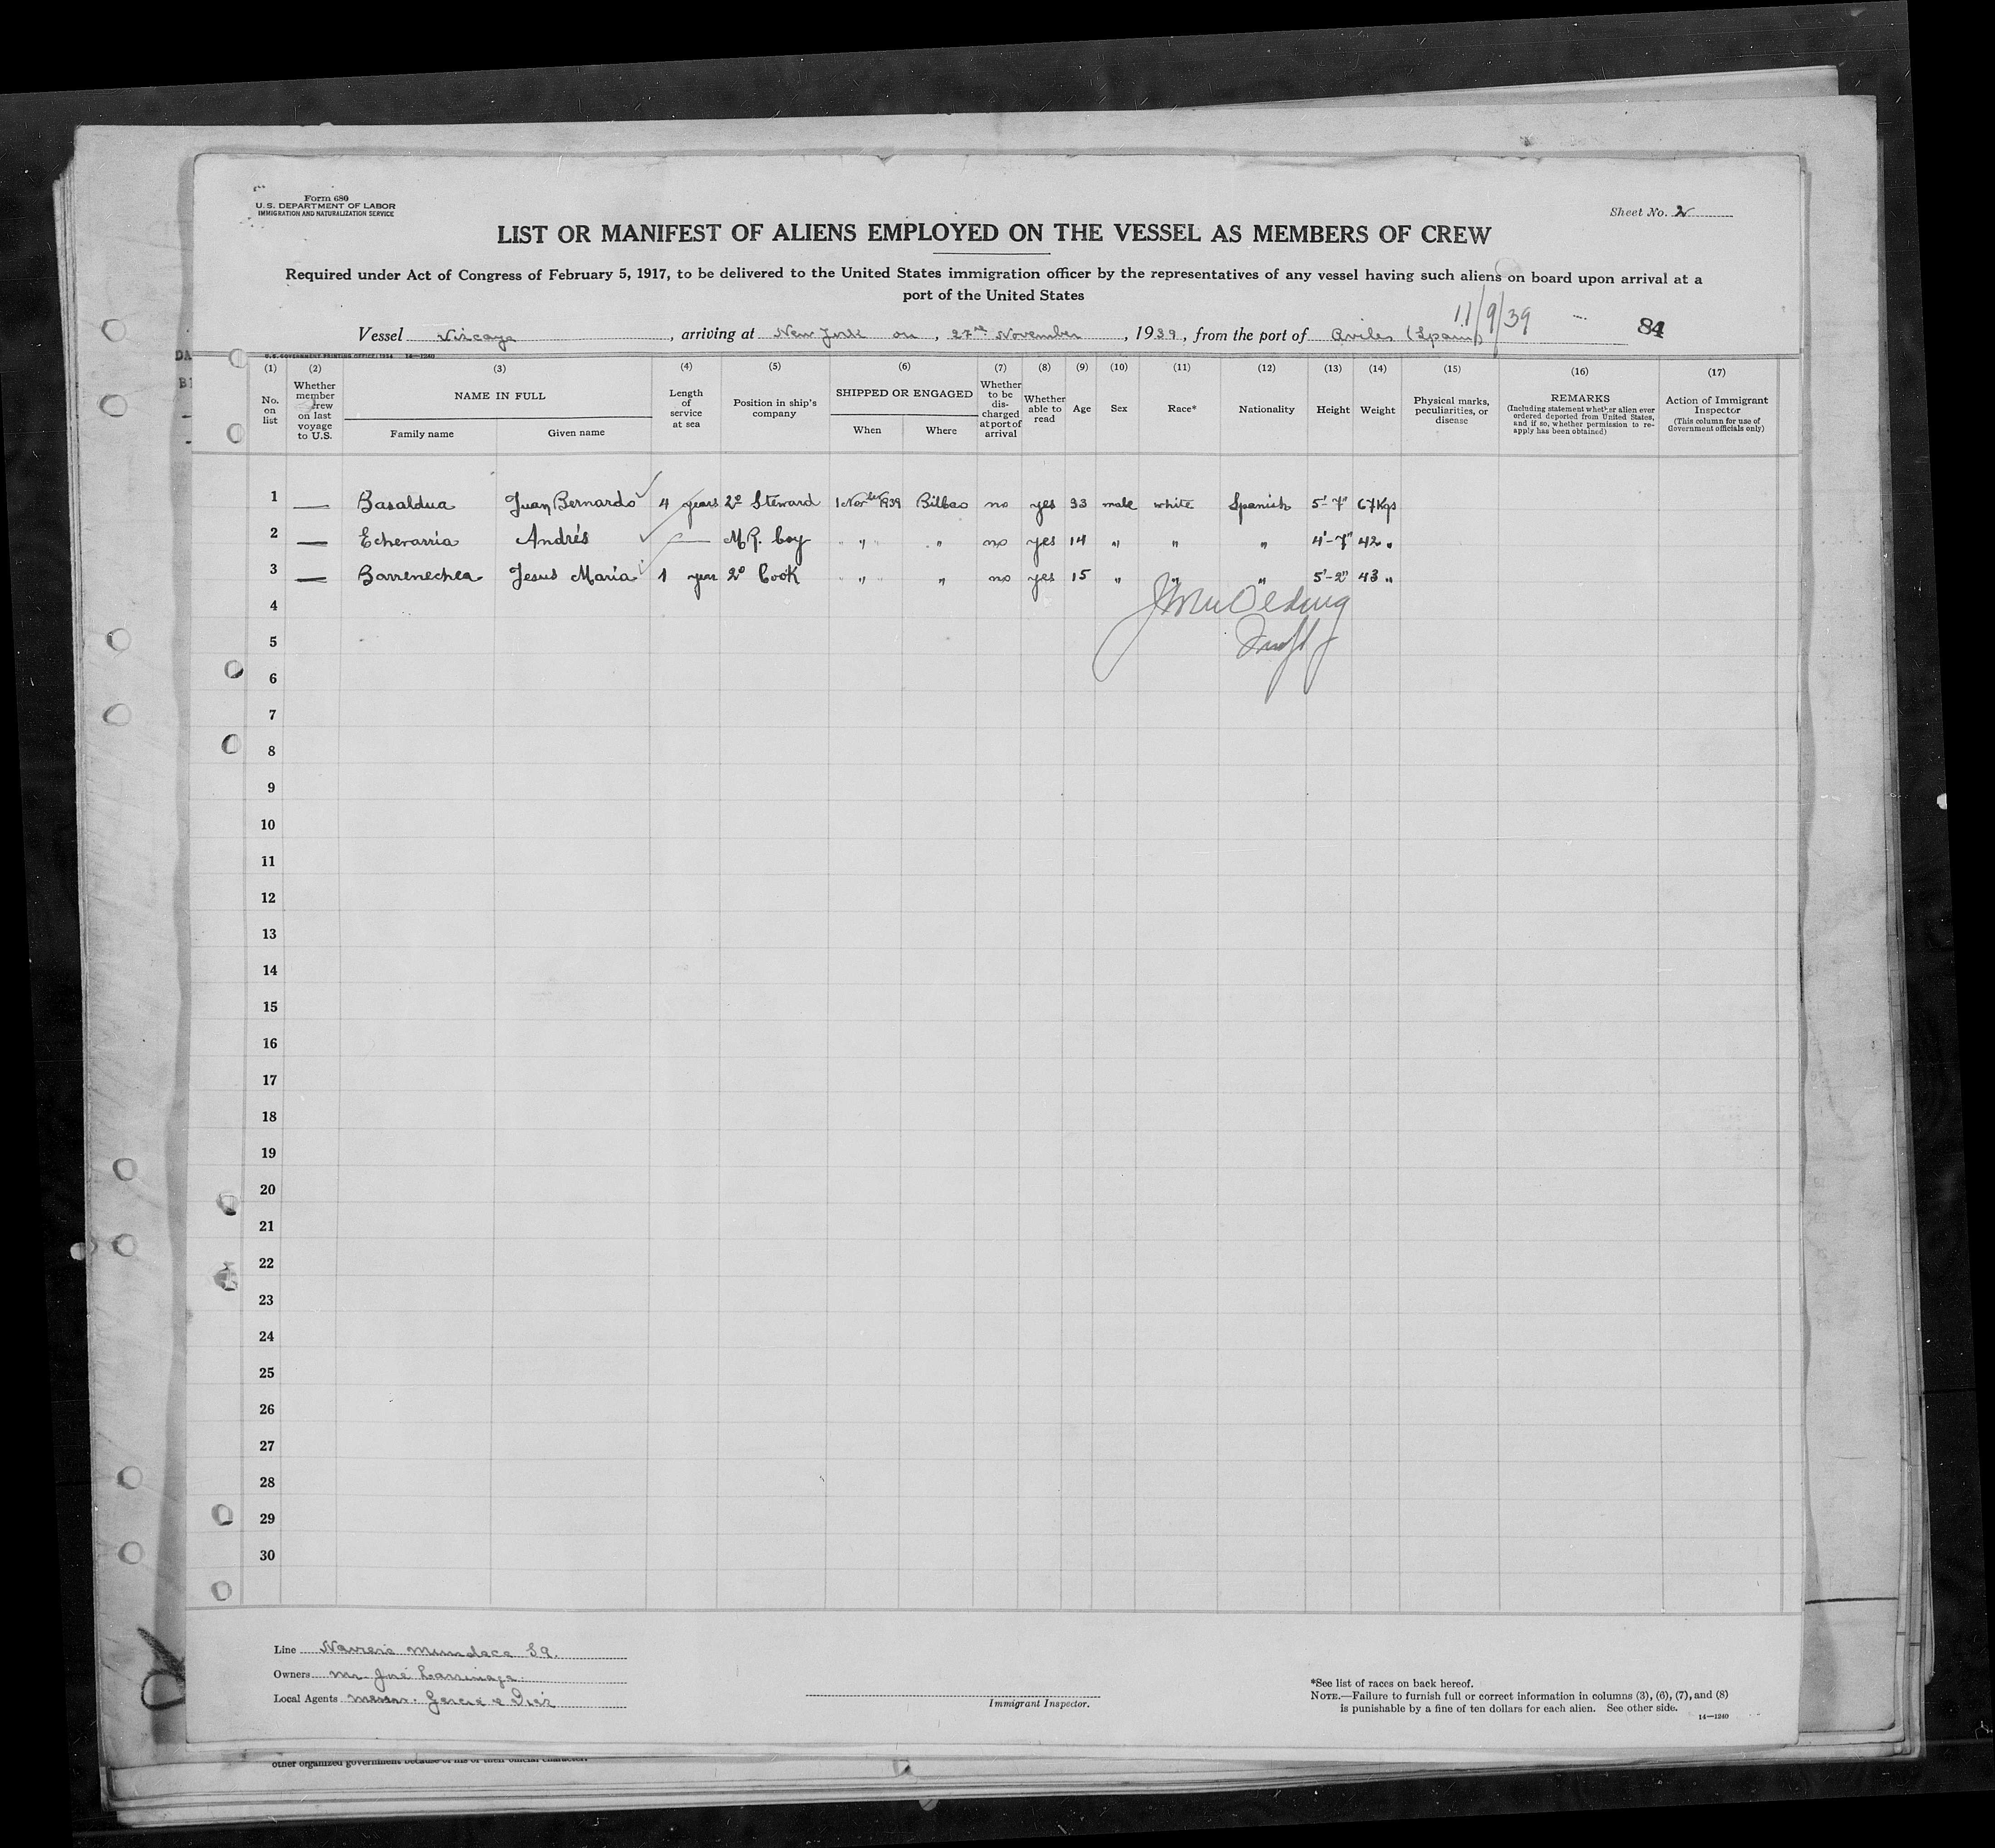 Form 680
U.S. DEPARTMENT OF LABOR
IMMIGRATION AND NATURALIZATION SERVICE
Sheet No. 2
LIST OR MANIFEST OF ALIENS EMPLOYED ON THE VESSEL AS MEMBERS OF CREW
Required under Act of Congress of February 5, 1917, to be delivered to the United States immigration officer by the representatives of any vessel having such aliens on board upon arrival at a
port of the United States
11/9/39
Vessel Vizcaya, arriving at New York on, 27th November, 1939, from the port of Aviles (Spain) 84
U.S. GOVERNMENT PRINTING OFFICE: 1934 14—1240
(1) No. on list
(2) Whether member crew on last voyage to U.S.
(3) NAME IN FULL Family name Given name
(4) Length of service at sea
(5) Position in ship's company
(6) SHIPPED OR ENGAGED When Where
(7) Whether to be discharged at port of arrival
(8) Whether able to read
(9) Age
(10) Sex
(11) Race*
(12) Nationality
(13) Height
(14) Weight
(15) Physical marks, peculiarities, or disease
(16) REMARKS (Including statement whether alien ever ordered deported from United States, and if so, whether permission to re-apply has been obtained)
(17) Action of Immigrant Inspector (This column for use of Government officials only)
1 — Basaldua Juan Bernardo 4 years 2º Steward 1 Novber 1939 Bilbao no yes 33 male white Spanish 5'-7" 67 Kgs
2 — Echevarria Andrés — M.R. boy " " no yes 14 " " " 4'-7" 42 "
3 — Barrenechea Jesus Maria 1 year 2º Cook " " no yes 15 " " " 5'-2" 43 "
4
5
6
7
8
9
10
11
12
13
14
15
16
17
18
19
20
21
22
23
24
25
26
27
28
29
30
Line Naviera Mundaca S.A.
Owners Mr. José Larrinaga
Local Agents Messrs. Garcia & Diaz
Immigrant Inspector.
*See list of races on back hereof.
NOTE.—Failure to furnish full or correct information in columns (3), (6), (7), and (8)
is punishable by a fine of ten dollars for each alien. See other side.
14—1240
other organized government because of his or their official character.